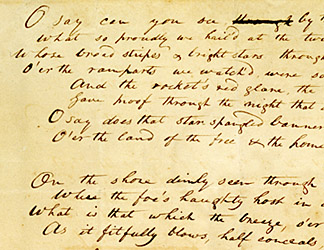 O say can you see through by
What so proudly we hail'd at the
Whose broad stripes & bright stars through
O'er the ramparts we watch'd, were so
And the rocket's red glare, the
Gave proof through the night that
O say does that star spangled banner
O'er the land of the free & the home
On the shore dimly seen through
Where the foe's haughty host in
What is that which the breeze, o'er
As it fitfully blows, half conceals